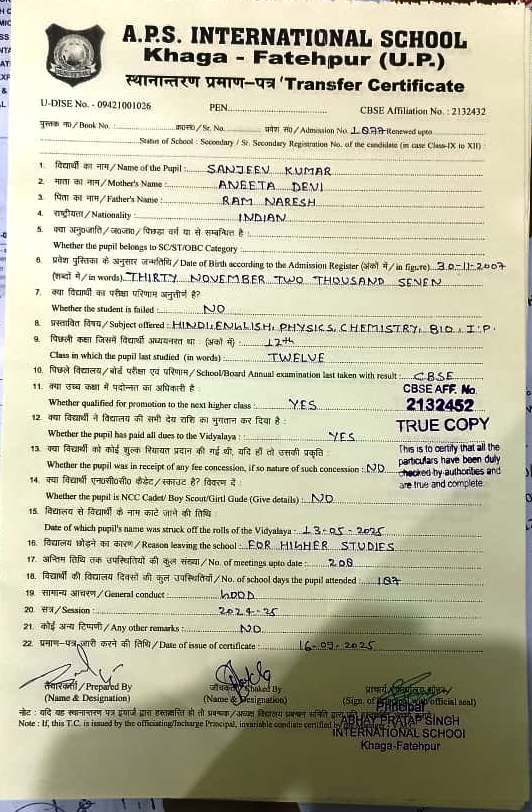 A.P.S. INTERNATIONAL SCHOOL
Khaga - Fatehpur (U.P.)
स्थानान्तरण प्रमाण-पत्र 'Transfer Certificate
U-DISE No. - 09421001026 PEN............ CBSE Affiliation No. : 2132432
पुस्तक नं0/Book No. : ............ क्र0सं0/Sr. No. ............ प्रवेश सं0/Admission No. 1877 Renewed upto............
Status of School : Secondary / Sr. Secondary Registration No. of the candidate (in case Class-IX to XII)
1. विद्यार्थी का नाम/Name of the Pupil : SANJEEV KUMAR
2. माता का नाम/Mother's Name : ANEETA DEVI
3. पिता का नाम/Father's Name : RAM NARESH
4. राष्ट्रीयता/Nationality : INDIAN
5. क्या अनु0जाति/ज0जा0/पिछड़ा वर्ग या से सम्बन्धित है :
Whether the pupil belongs to SC/ST/OBC Category :
6. प्रवेश पुस्तिका के अनुसार जन्मतिथि/Date of Birth according to the Admission Register (अंकों में/in figure) 30-11-2007
(शब्दों में/in words) THIRTY NOVEMBER TWO THOUSAND SEVEN
7. क्या विद्यार्थी का परीक्षा परिणाम अनुत्तीर्ण है?
Whether the student is failed : NO
8. प्रस्तावित विषय/Subject offered : HINDI, ENGLISH, PHYSICS, CHEMISTRY, BIO, I.P.
9. पिछली कक्षा जिसमें विद्यार्थी अध्ययनरत था : (अंकों में) : 12th
Class in which the pupil last studied (in words) : TWELVE
10. पिछले विद्यालय/बोर्ड परीक्षा एवं परिणाम/School/Board Annual examination last taken with result : CBSE
11. क्या उच्च कक्षा में पदोन्नत का अधिकारी है :
Whether qualified for promotion to the next higher class : YES
CBSE AFF. No.
2132452
TRUE COPY
This is to certify that all the
particulars have been duly
checked by authorities and
are true and complete.
12. क्या विद्यार्थी ने विद्यालय की सभी देय राशि का भुगतान कर दिया है :
Whether the pupil has paid all dues to the Vidyalaya : YES
13. क्या विद्यार्थी को कोई शुल्क रियायत प्रदान की गई थी, यदि हाँ तो उसकी प्रकृति :
Whether the pupil was in receipt of any fee concession, if so nature of such concession : NO
14. क्या विद्यार्थी एन0सी0सी0 कैडेट/स्काउट है? विवरण दें :
Whether the pupil is NCC Cadet/ Boy Scout/Girl Gude (Give details) : NO
15. विद्यालय से विद्यार्थी के नाम काटे जाने की तिथि :
Date of which pupil's name was struck off the rolls of the Vidyalaya : 13-05-2025
16. विद्यालय छोड़ने का कारण/Reason leaving the school : FOR HIGHER STUDIES
17. अन्तिम तिथि तक उपस्थितियों की कुल संख्या/No. of meetings upto date : 208
18. विद्यार्थी की विद्यालय दिवसों की कुल उपस्थितियाँ/No. of school days the pupil attended : 187
19. सामान्य आचरण/General conduct : GOOD
20. सत्र/Session : 2024-25
21. कोई अन्य टिप्पणी/Any other remarks : NO
22. प्रमाण-पत्र जारी करने की तिथि/Date of issue of certificate : 16-09-2025
तैयारकर्ता/Prepared By
(Name & Designation)
(Name & Designation)
Principal
ABHAY PRATAP SINGH
INTERNATIONAL SCHOOL
Khaga-Fatehpur
नोट : यदि यह स्थानान्तरण पत्र इंचार्ज द्वारा हस्ताक्षरित हो तो प्रबन्धक/अध्यक्ष विद्यालय प्रबन्धन समिति द्वारा
Note : If, this T.C. is issued by the officiating/Incharge Principal, invariable